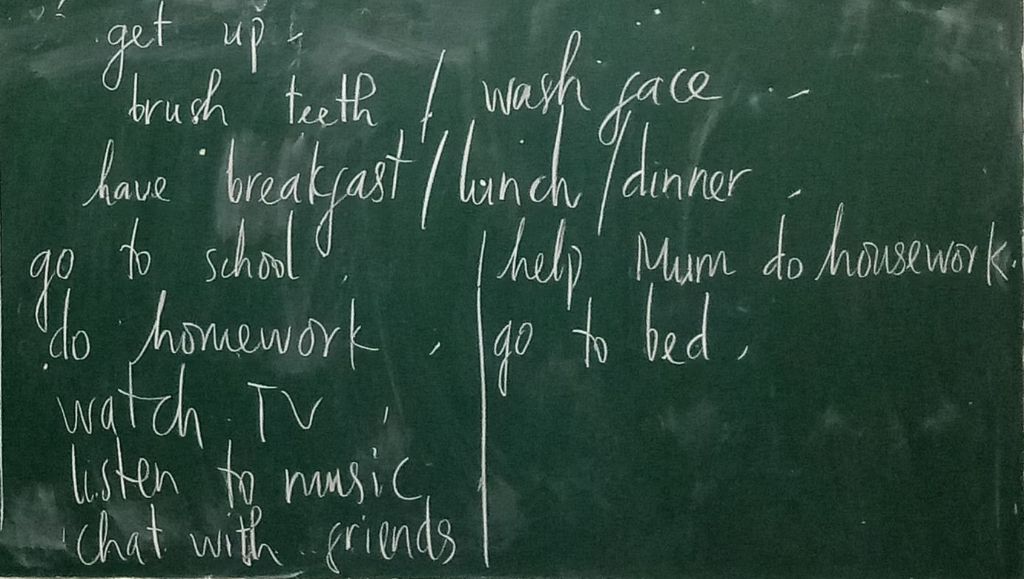 get up,
brush teeth / wash face
have breakfast / lunch / dinner,
go to school,
do homework,
watch TV,
listen to music,
chat with friends
help Mum do housework.
go to bed,